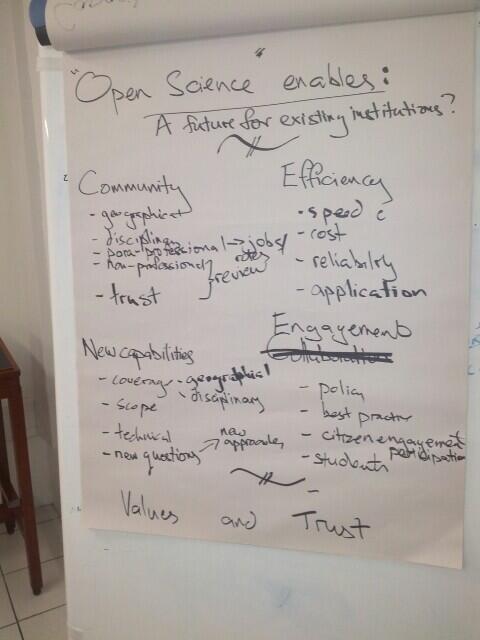 "Open Science" enables:
A future for existing institutions?
Community
- geographical
- disciplinary
- para-professional → jobs/
roles
- non-professional } review
- trust
Efficiency
- speed
- cost
- reliability
- application
New capabilities
- coverage - geographical
- disciplinary
- scope
- technical
- new questions → new
approaches
Engagement
Collaboration
- policy
- best practice
- citizen engagement
participation
- students
-
Values and Trust